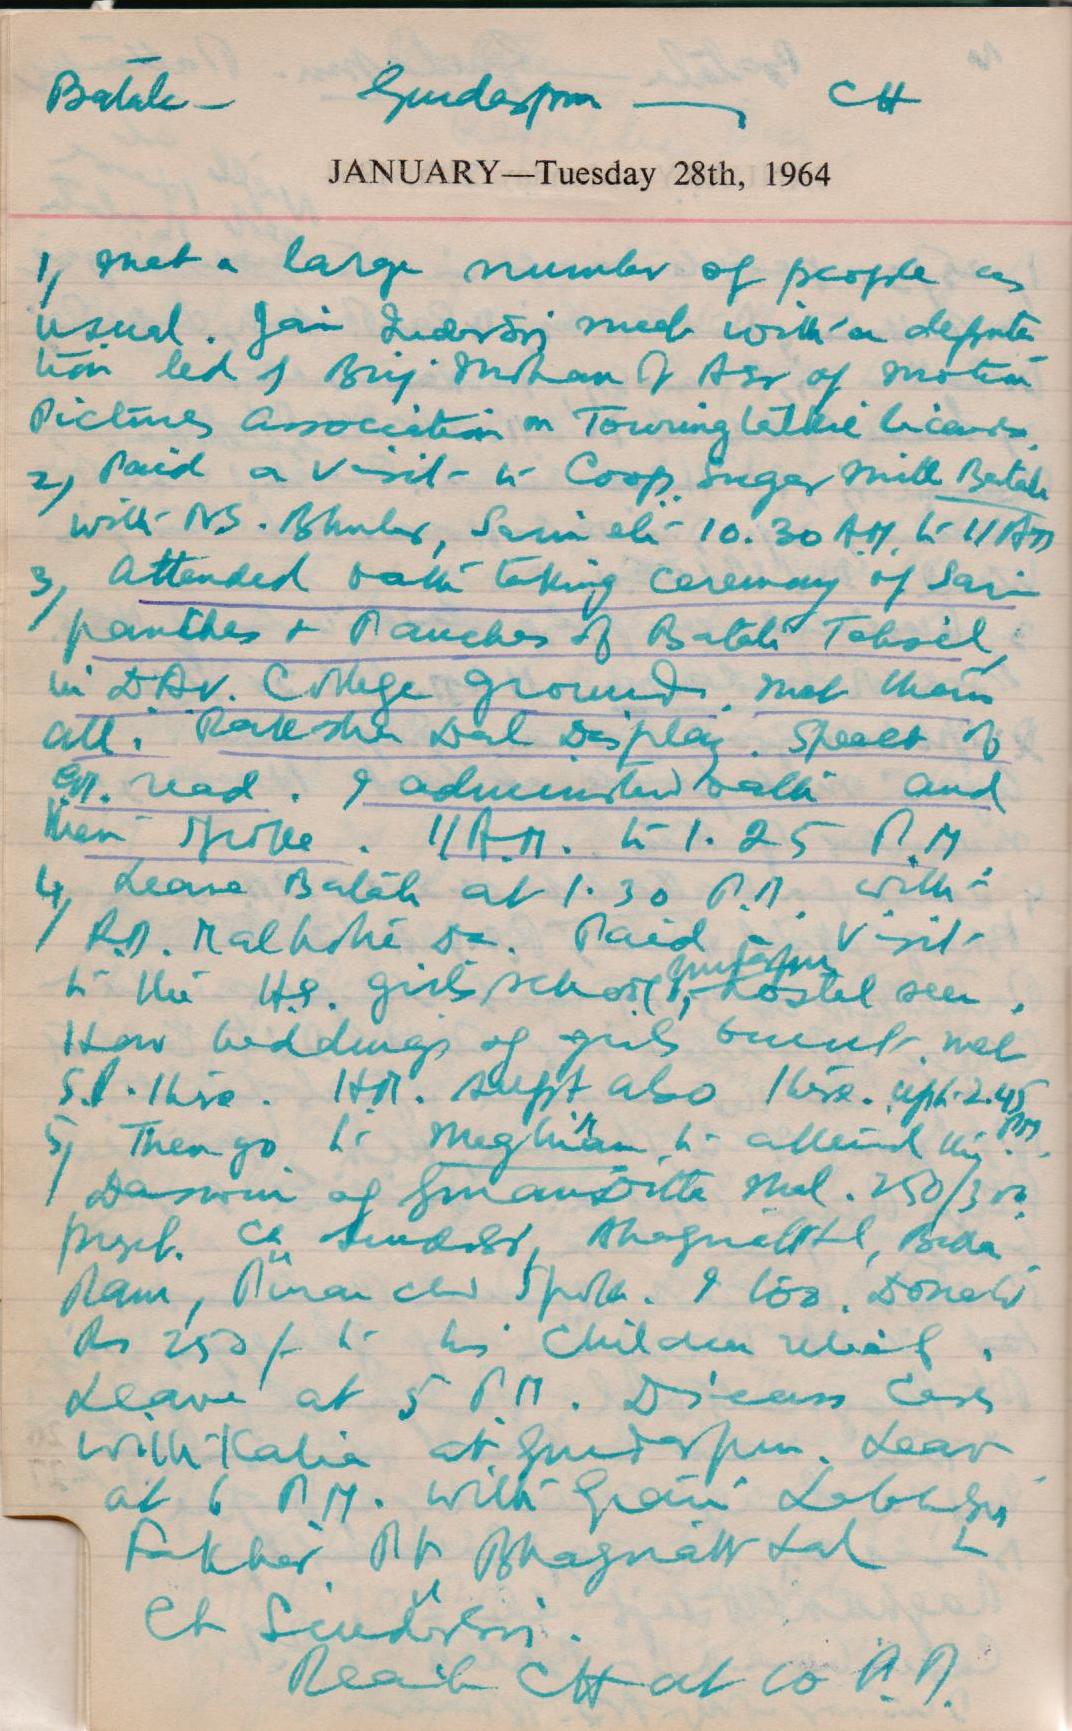 Batala — Gurdaspur — CH
JANUARY—Tuesday 28th, 1964
1, Met a large number of people as
usual. Jain met with a deputa
tion led by Brij Mohan of Asr of Motion
Pictures Association on Touring licences.
2, Paid a visit to Coop. Sugar Mill Batala
with N.S. 10.30 A.M. to 11 AM
3, Attended oath taking ceremony of Sar
panches & Panches of Batala Tehsil,
in D.A.V. College grounds. Met them
all. Raksha Dal Display. Speech of
C.M. read. I administered oath and
then spoke. 11 A.M. to 1.25 P.M.
4, Leave Batala at 1.30 P.M. with
R.N. Malhotra Paid a visit
to the H.S. girls school, hostel seen.
How beddings of girls burnt. Met
S.P. there. H.M. Supt also there. upto 2.45 PM
5, Then go to to attend the
of Mal. 250/300
prest. Ch Sunder, Bhagnatt Lal,
Ram, Puran Chd spoke. I too. Donate
Rs 250/- to his children relief.
Leave at 5 P.M. Discuss cases
with Kalia at Gurdaspur. Leave
at 6 P.M. with Giani
Pt Bhagnatt Lal &
Ch
Reach CH at 10 P.M.